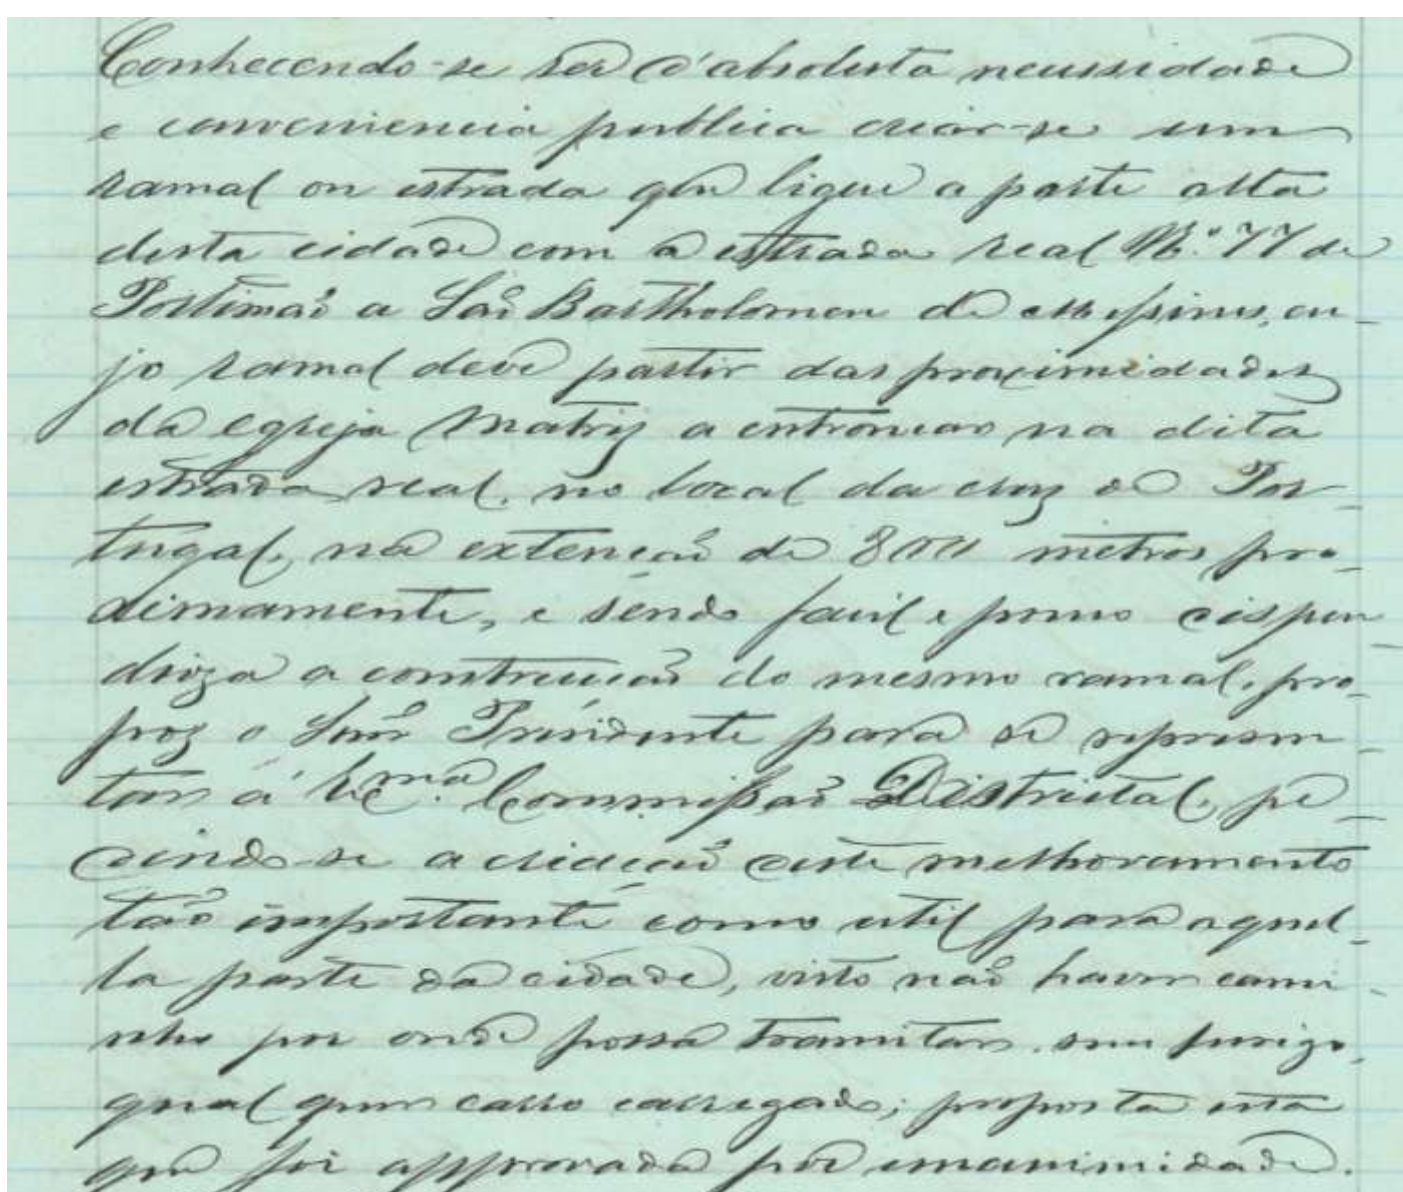 Conhecendo-se ser d'absoluta necessidade
e conveniencia publica criar-se um
ramal ou estrada que ligue a parte alta
desta cidade com a estrada real N.º 77 de
Portimão a São Bartholomeu de Messines, cu-
jo ramal deve partir das proximidades
da egreja Matriz a entroncar na dita
estrada real, no local da cruz de Por-
tugal, na extenção de 800 metros pro-
ximamente, e sendo facil e pouco dispen-
dioza a construcção do mesmo ramal, pro-
poz o Snr̃ Presidente para se represen-
tar á Ex.ma Commissão Districtal, pe-
dindo-se a creação deste melhoramento
tão importante como util para aquel-
la parte da cidade, visto não haver cami-
nho por onde possa tramitar sem perigo,
qual quer carro carregado; proposta esta
que foi approvada por unanimidade.